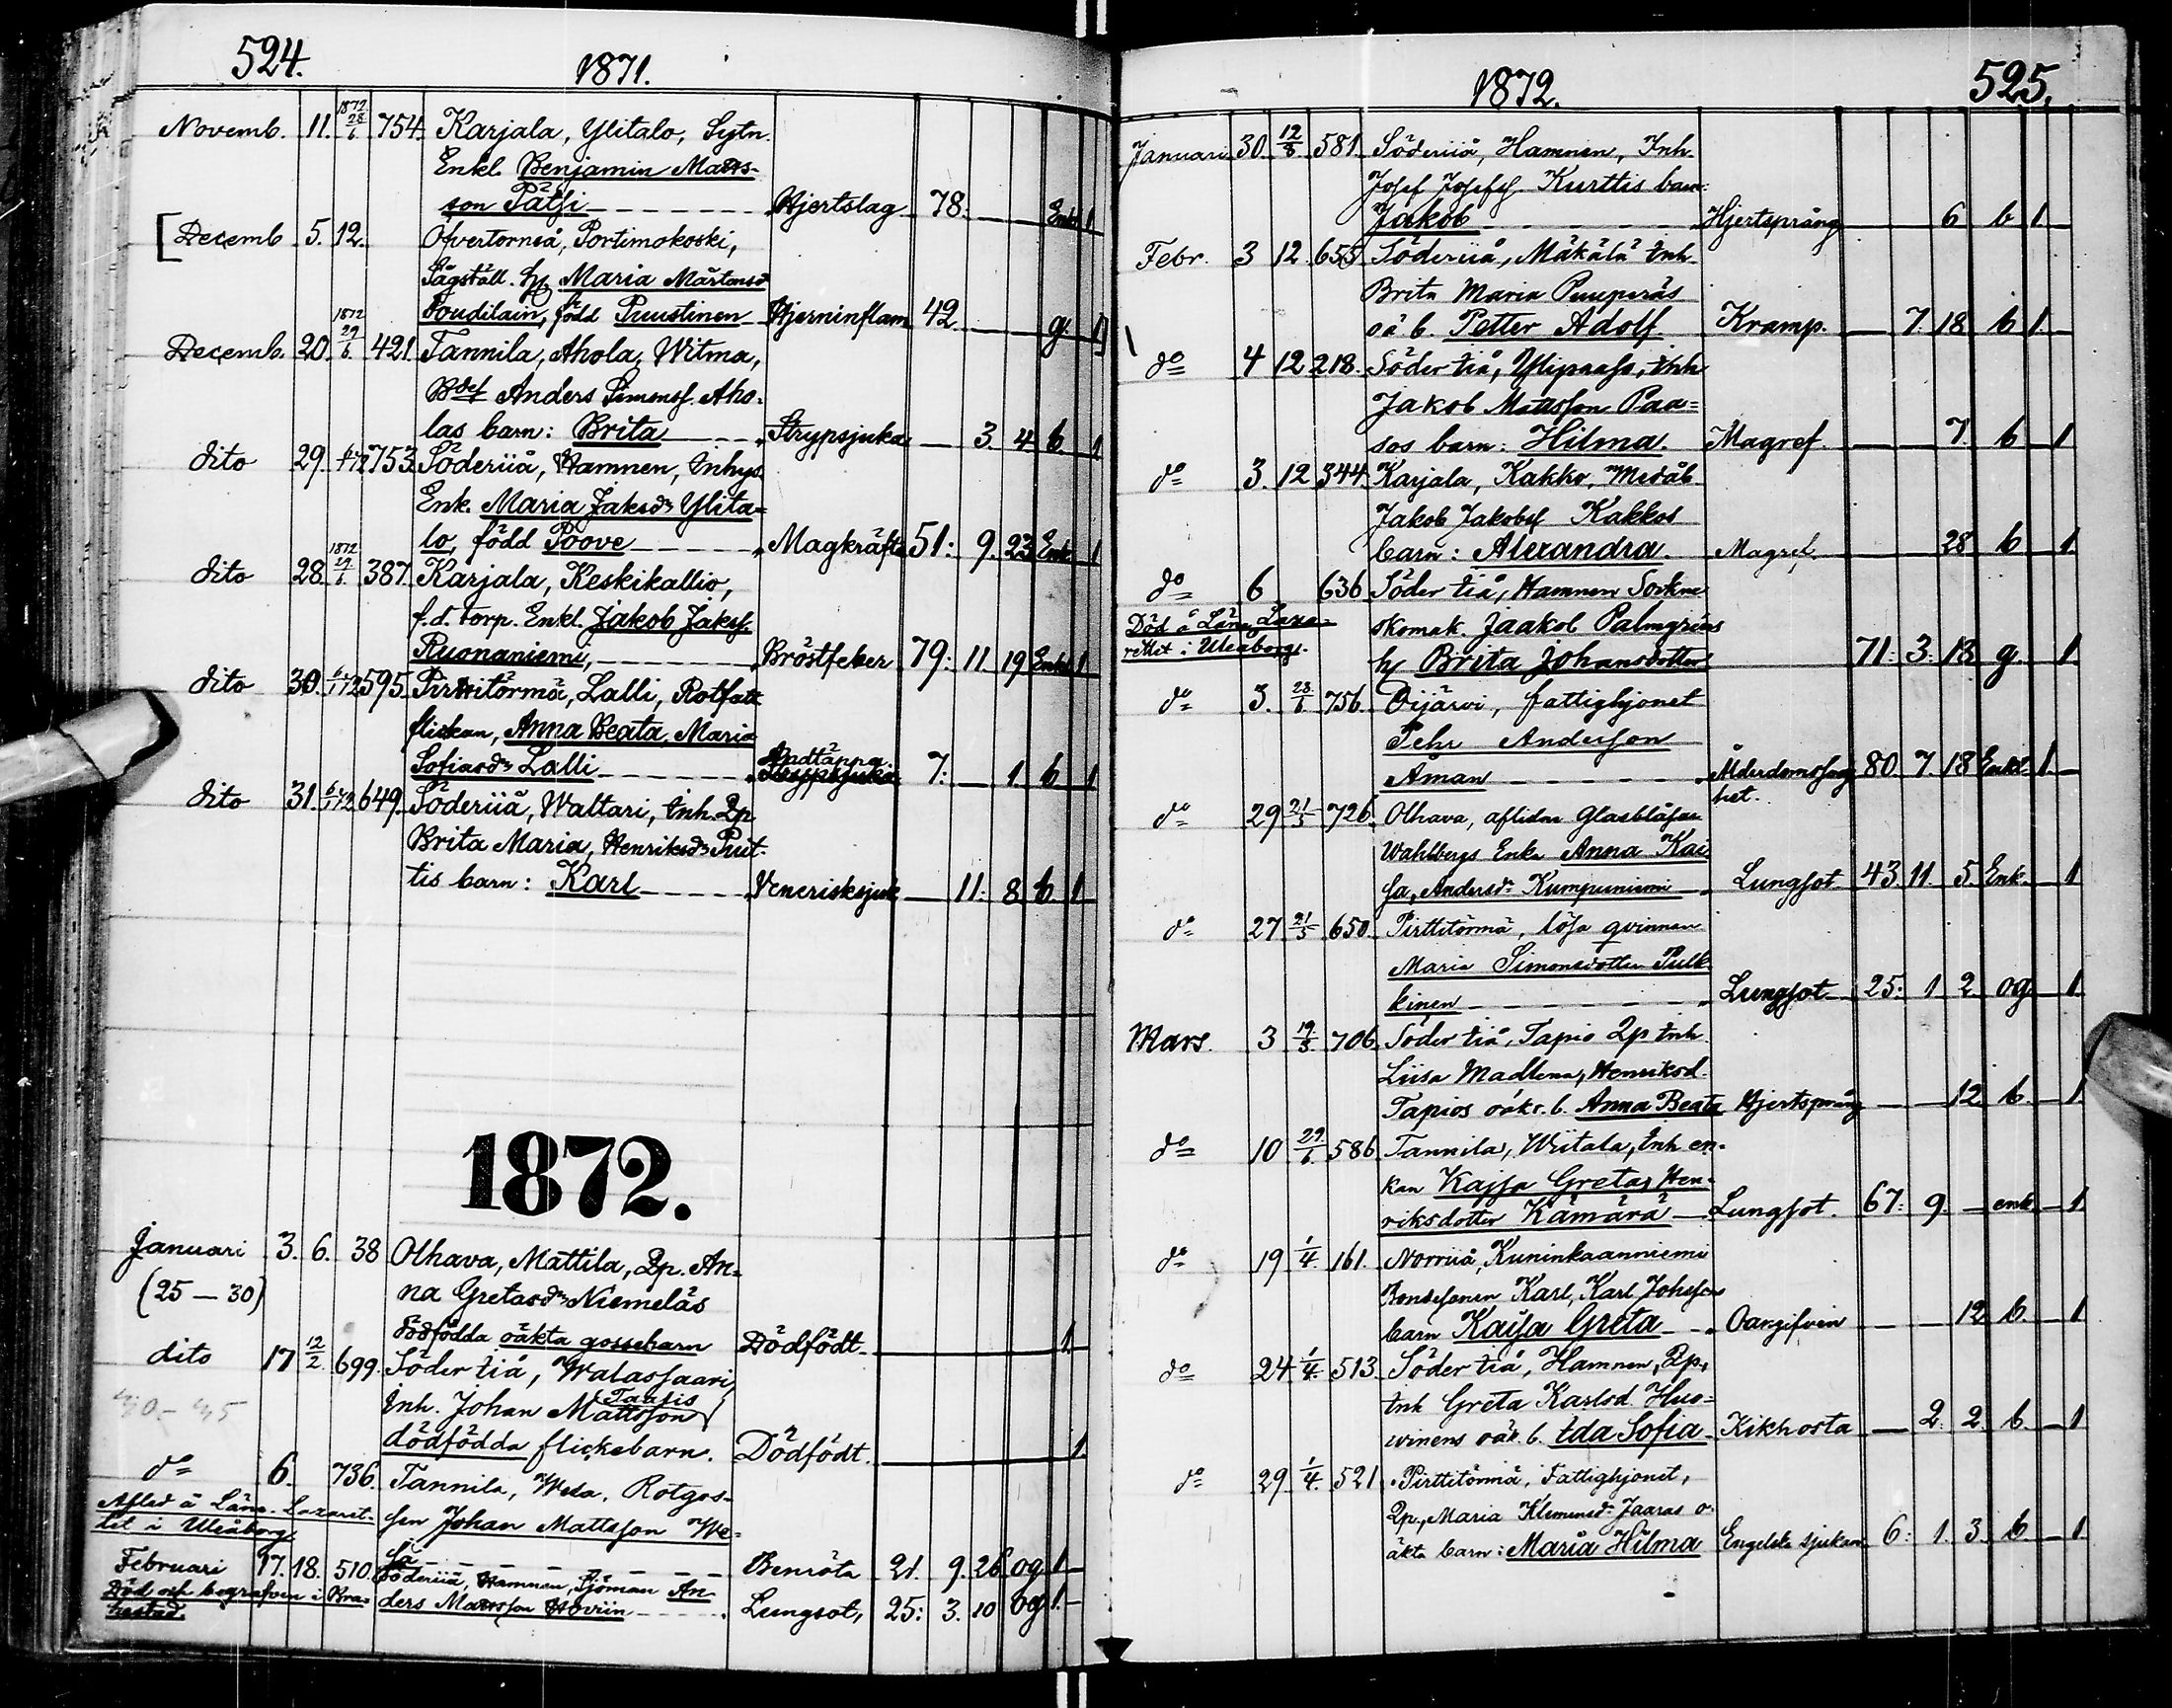 524.
1871.
Novemb. 11. 1872 28/6 754. Karjala, Ylitalo, Sytn.
Enkl. Benjamin Matts-
son Pätsi Hjertslag 78. Enkl 1
[Decemb 5. 12. Öfvertorneå, Portimokoski,
Sågställ. h. Maria Mårtensd
Poudilain, född Puustinen Hjerninflam 42 g. 1]
Decemb. 20. 1872 29/6 421. Tannila, Ahola, Witma,
Anders Simonss. Aho-
las barn: Brita Strypsjuka 3. 4 b. 1
dito 29. 753. Söderiiå, Hamnen, Inhys
Enk. Maria Jaksdr Ylita-
lo, född Poove Magkräfta 51: 9. 23 Enk 1
dito 28. 1872 387. Karjala, Keskikallio,
f.d. torp. Enkl. Jakob Jakss.
Ruonaniemi, Bröstfeber 79: 11. 19 Enkl 1
dito 30. 595. Pirttitörmä, Lalli, Rotfatt
flickan, Anna Beata Maria
Sofiasdr Lalli Andtäppa. 7: 1. b. 1
dito 31. 649. Söderiiå, Waltari, Inh. Qp
Brita Maria, Henriksdr Puut-
tis barn: Karl Venerisksjuk 11: 8 b. 1
1872.
Januari 3. 6. 38 Olhava, Mattila, Qp. An-
(25 — 30) na Gretasdr Niemeläs
dödfödda oäkta gossebarn Dödfödt 1
dito 17 12/2 699. Söder Iiå, Walassaari,
Inh. Johan Mattsson Taatis
40 - 45
dödfödda flickebarn. Dödfödt. 1
do 6. 736. Tannila, Wesa, Rotgos-
Afled å Läns-Lazaret- sen Johan Mattsson We-
tet i Uleåborg
sa Benröta 21. 9. 26 og 1
Februari 17. 18. 510. Söderiiå, Hamnen, Sjöman An-
Död och begrafven i Bra- ders Mattsson Hoviin Lungsot, 25: 3. 10 og 1
hestad.
1872.
525.
Januari 30. 12/3 581. Söderiiå, Hamnen, Inh.
Josef Josefss. Kurttis barn:
Jakob Hjertsprång 6 b 1
Febr. 3 12 655 Söderiiå, Mäkälä Inh.
Brita Maria Puuperäs
oä b. Petter Adolf Kramp. 7. 18 b 1
do 4 12 218. Söder Iiå, Ylipaaso, Inh
Jakob Mattsson Paa-
sos barn: Hilma Magref. 7 b 1
do 3. 12 344. Karjala, Kakko, Medåb.
Jakob Jakobss Kakkos
barn: Alexandra. Magref. 28 b 1
do 6 636 Söder Iiå, Hamnen Sockne
Död å Läns Laza- skomak. Jaakol Palmgréns
rettet i Uleåborg. h. Brita Johansdotter 71: 3: 13. g. 1
do 3. 28/6 756. Oijärvi, fattighjonet
Pehr Andersson
Åman Ålderdomssvag 80 7. 18 Enkl. 1
het.
do 29 21/5 726. Olhava, aflidne Glasblåsar
Wahlbergs Enka Anna Kai
sa, Andersdr Kumpuniemi Lungsot. 43. 11. 5. Enk. 1
do 27 21/5 650. Pirttitörmä, lösa qvinnan
Maria Simonsdotter Pulk
kinen Lungsot 25: 1 2 og 1
Mars. 3 19/3 706. Söder Iiå, Tapio Qp Inh
Liisa Madlena, Henriksd.
Tapios oäkt. b. Anna Beata Hjertsprång 12 b. 1
do 10 29/6 586. Tannila, Wiitala, Inh en-
kan Kajsa Greta, Hen-
riksdotter Kämärä Lungsot. 67: 9. enk 1
do 19 1/4 161. Norriiå, Kuninkaanniemi
Bondesonen Karl, Karl Johssons
barn Kaisa Greta Oangifven 12 b. 1
do 24 1/4 513. Söder Iiå, Hamnen, Qp,
Inh Greta Karlsd. Huo-
winens oäk. b. Ida Sofia Kikhosta 2. 2 b. 1
do 29. 1/4 521. Pirttitörmä, Fattighjonet,
Qp., Maria Klemensdr Jaaras o-
äkta barn: Maria Hilma Engelska sjukan 6: 1. 3. b. 1